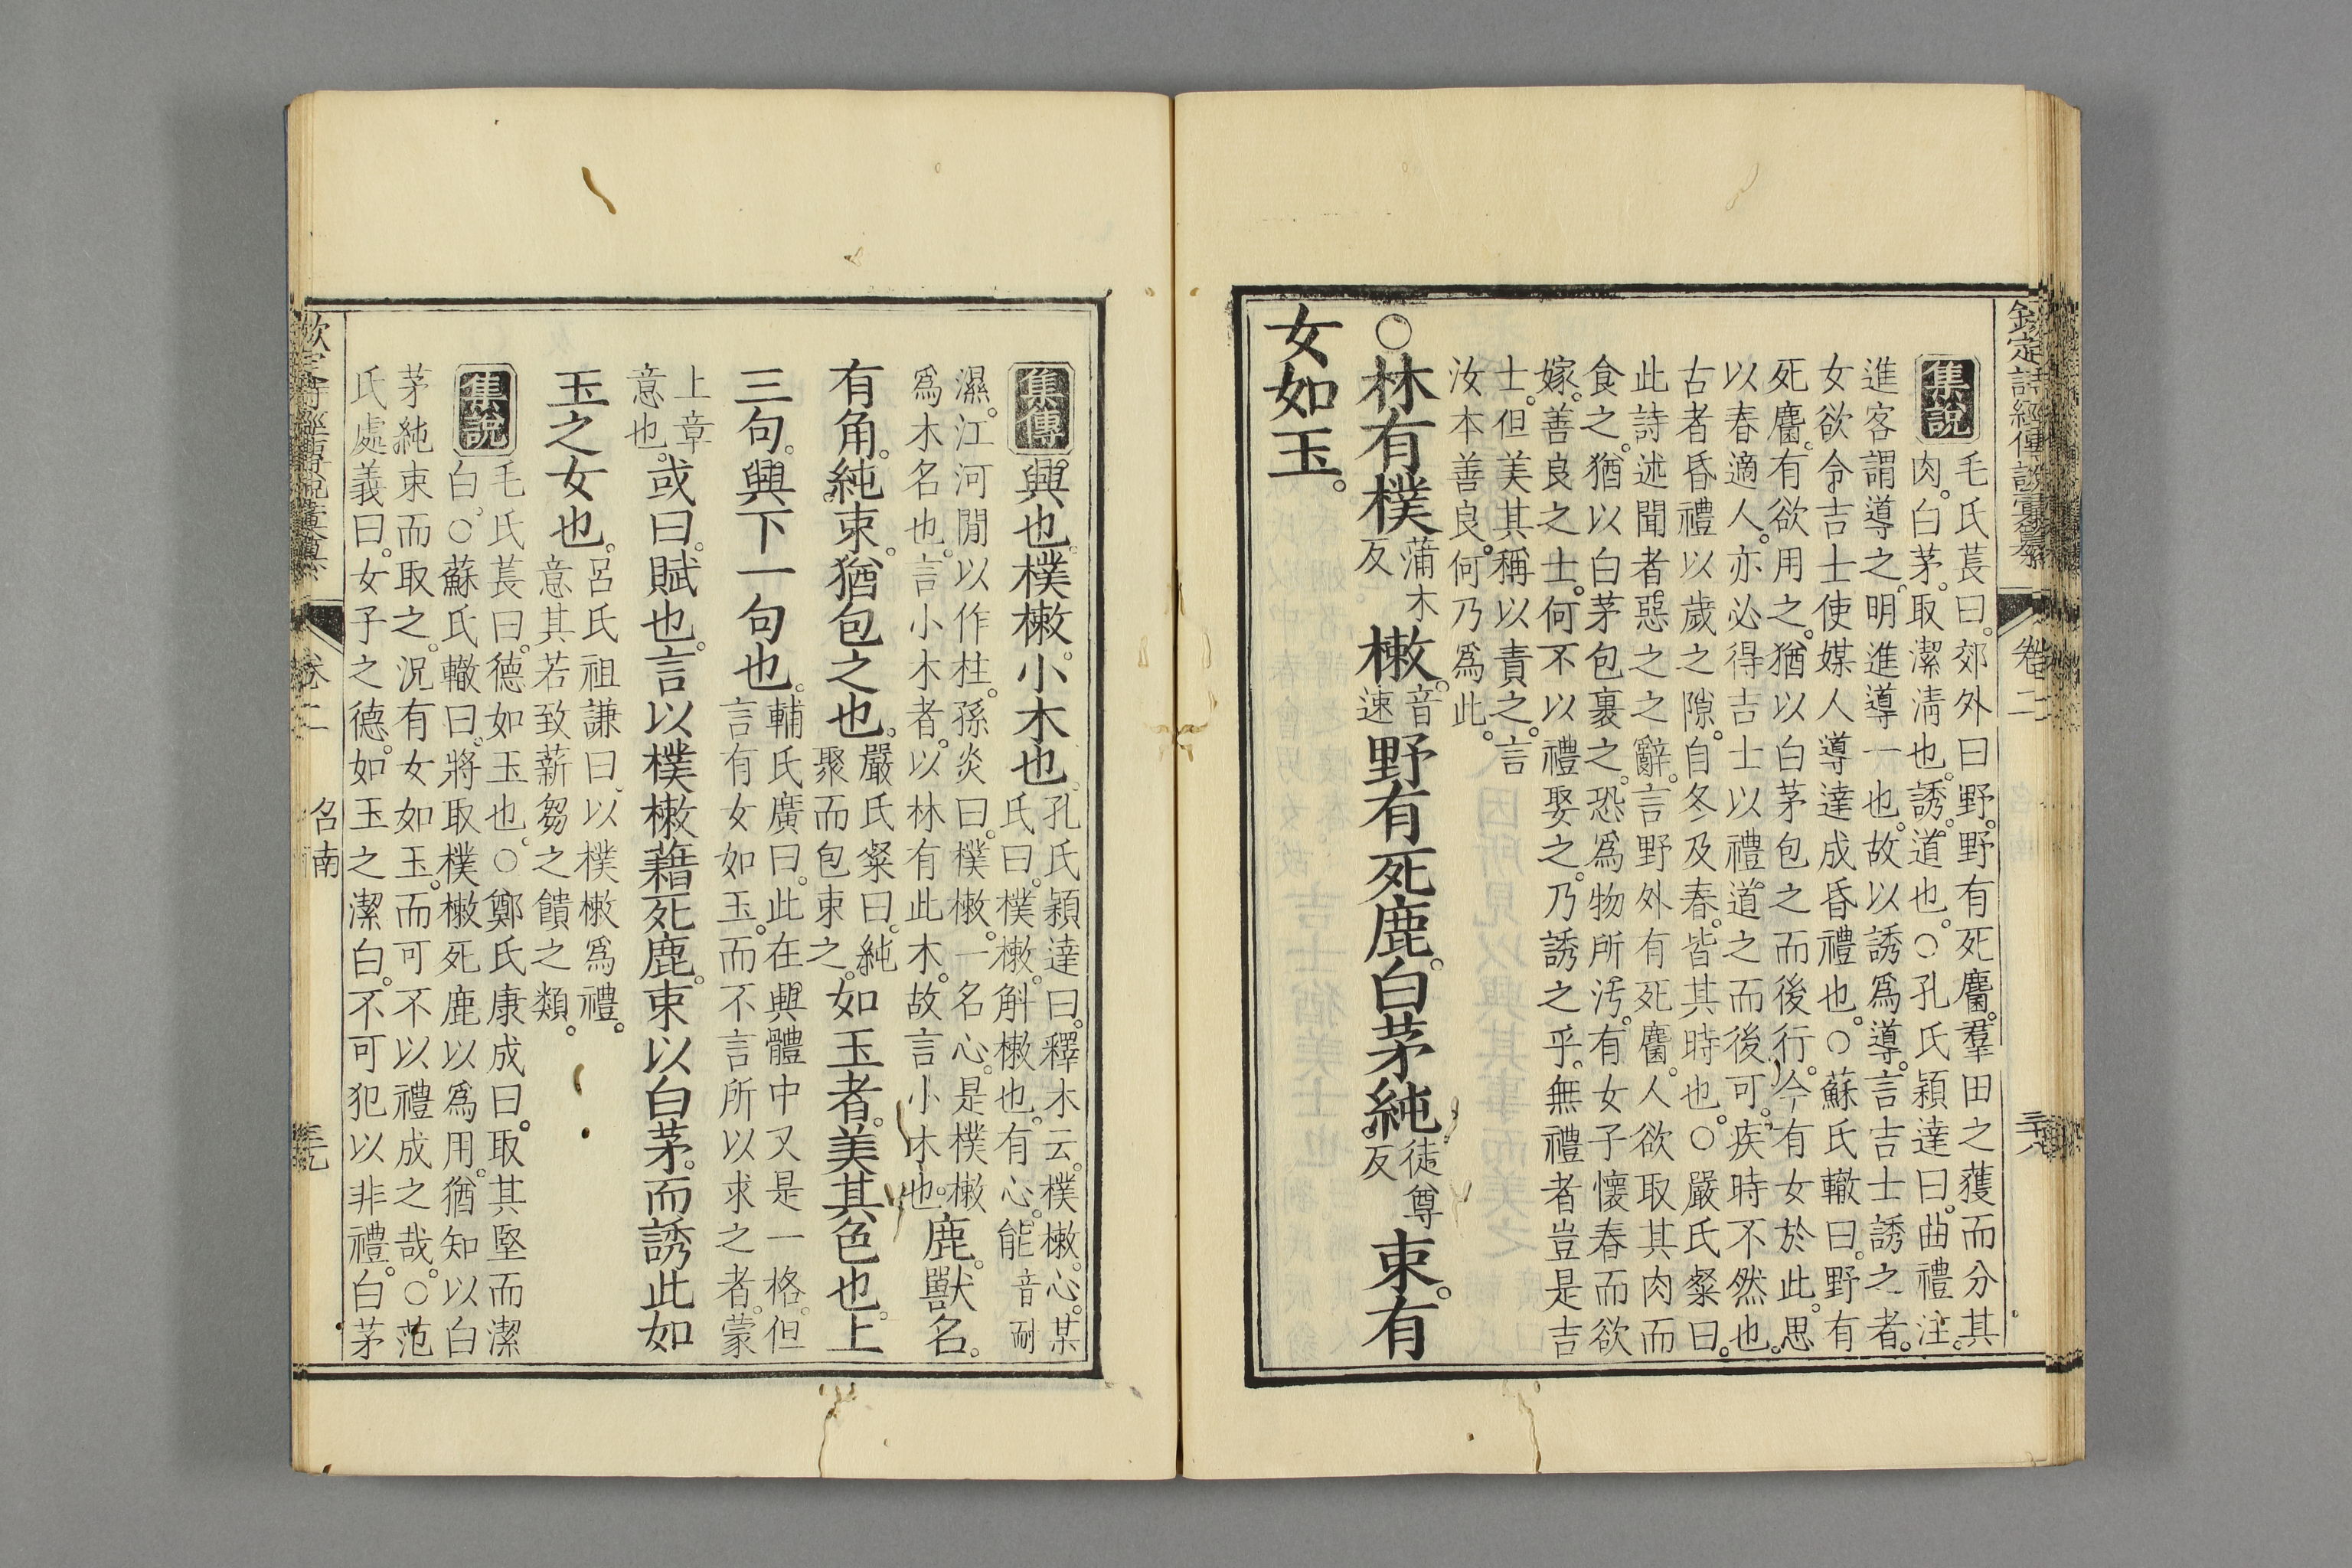 欽定詩經傳說彙纂 卷二 三十八
集說 毛氏萇曰郊外曰野野有死麕羣田之獲而分其
肉白茅取潔淸也誘道也○孔氏穎達曰曲禮注
進客謂導之明進導一也故以誘爲導言吉士誘之者
女欲令吉士使媒人導達成昏禮也○蘇氏轍曰野有
死麕有欲用之猶以白茅包之而後行今有女於此思
以春適人亦必得吉士以禮道之而後可疾時不然也
古者昏禮以歲之隙自冬及春皆其時也○嚴氏粲曰
此詩述聞者惡之之辭言野外有死麕人欲取其肉而
食之猶以白茅包裹之恐爲物所汚有女子懷春而欲
嫁善良之士何不以禮娶之乃誘之乎無禮者豈是吉
士但美其稱以責之言
汝本善良何乃爲此
○林有樸蒲木反樕音速野有死鹿白茅純徒尊反束有
女如玉
集傳 興也樸樕小木也孔氏穎達曰釋木云樸樕心某
氏曰樸樕斛樕也有心能音耐
濕江河閒以作柱孫炎曰樸樕一名心是樸樕
爲木名也言小木者以林有此木故言小木也鹿獸名
有角純束猶包之也嚴氏粲曰純聚而包束之如玉者美其色也上
三句興下一句也輔氏廣曰此在興體中又是一格但
言有女如玉而不言所以求之者蒙
上章意也或曰賦也言以樸樕藉死鹿束以白茅而誘此如
玉之女也呂氏祖謙曰以樸樕爲禮
意其若致薪芻之饋之類
集說 毛氏萇曰德如玉也○鄭氏康成曰取其堅而潔
白○蘇氏轍曰將取樸樕死鹿以爲用猶知以白
茅純束而取之況有女如玉而可不以禮成之哉○范
氏處義曰女子之德如玉之潔白不可犯以非禮白茅
欽定詩經傳說彙纂 卷二 召南 三十九